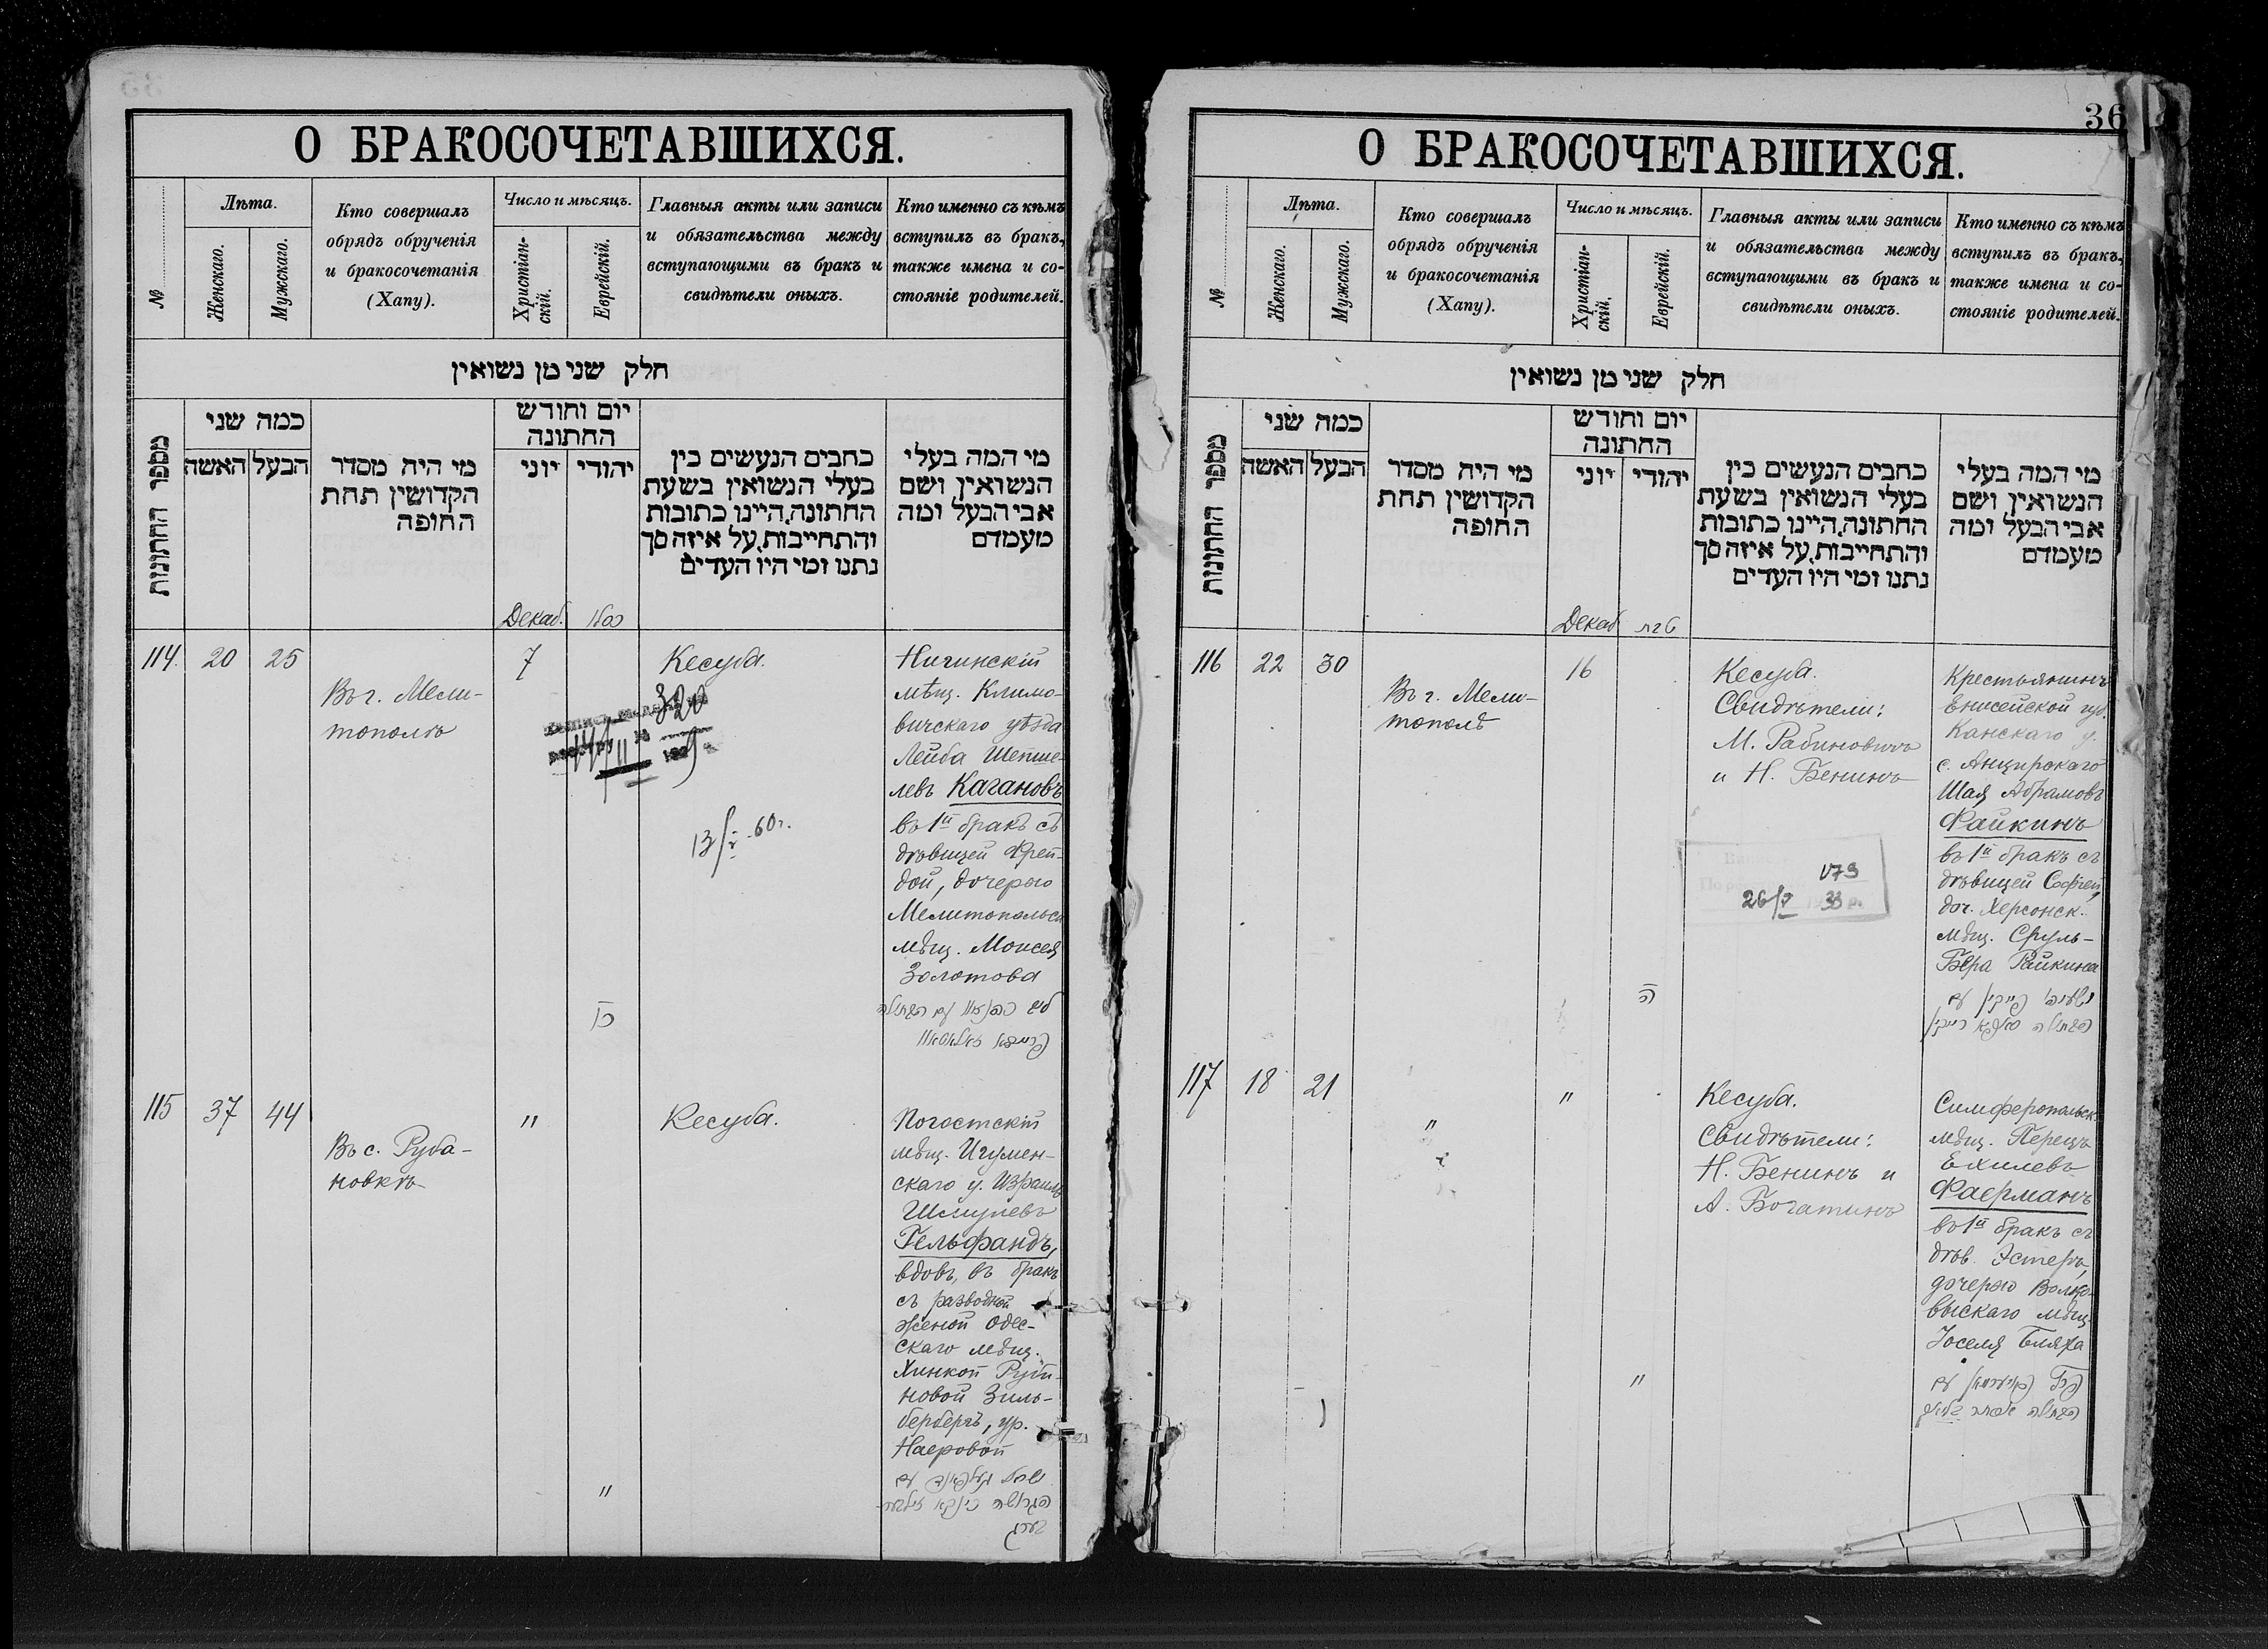 О БРАКОСОЧЕТАВШИХСЯ.
№
Лѣта.
Женскаго.
Мужскаго.
Кто совершалъ
обрядъ обрученія
и бракосочетанія
(Хапу).
Число и мѣсяцъ.
Христіан-
скій.
Еврейскій.
Главныя акты или записи
и обязательства между
вступающими въ бракъ и
свидѣтели оныхъ.
Кто именно съ кѣмъ
вступилъ въ бракъ,
также имена и со-
стояніе родителей.
חלק שני מן נשואין
מספר החתונות
כמה שני
הבעל
האשה
מי היה מסדר
הקדושין תחת
החופה
יום וחודש
החתונה
יוני
יהודי
כתבים הנעשים בין
בעלי הנשואין בשעת
החתונה, היינו כתובות
והתחייבות, על איזה סך
נתנו ומי היו העדים
מי המה בעלי
הנשואין ושם
אבי הבעל ומה
מעמדם
Декаб.
כסלו
114. 20 25
Въ г. Мели-
тополѣ
7
כו
Кесуба.
320
13/V-60 г.
Нигинскій
мѣщ. Климо-
вичскаго уѣзда
Лейба Шепше-
левъ Кагановъ
въ 1й бракъ съ
дѣвицей Фрей-
дой, дочерью
Мелитопольск
мѣщ. Моисея
Золотова
ליב כהנאוו עם הבתולה
פריידא זאלאטאוו
115 37 44
Въ с. Руба-
новкѣ
"
"
Кесуба.
Погостскій
мѣщ. Игумен-
скаго у. Израиль
Шмулевъ
Гельфандъ,
вдовъ, въ бракъ
съ разводной
женой Одес-
скаго мѣщ.
Хинкой Руви-
новой Зиль-
бербергъ, ур.
Наеровой
ישראל געלפאנד עם
הגרושה חינקא זילבער-
בערג
36
О БРАКОСОЧЕТАВШИХСЯ.
№
Лѣта.
Женскаго.
Мужскаго.
Кто совершалъ
обрядъ обрученія
и бракосочетанія
(Хапу).
Число и мѣсяцъ.
Христіан-
скій.
Еврейскій.
Главныя акты или записи
и обязательства между
вступающими въ бракъ и
свидѣтели оныхъ.
Кто именно съ кѣмъ
вступилъ въ бракъ,
также имена и со-
стояніе родителей.
חלק שני מן נשואין
מספר החתונות
כמה שני
הבעל
האשה
מי היה מסדר
הקדושין תחת
החופה
יום וחודש
החתונה
יוני
יהודי
כתבים הנעשים בין
בעלי הנשואין בשעת
החתונה, היינו כתובות
והתחייבות, על איזה סך
נתנו ומי היו העדים
מי המה בעלי
הנשואין ושם
אבי הבעל ומה
מעמדם
Декаб
טבת
116 22 30
Въ г. Мели-
тополѣ
16
ה
Кесуба.
Свидѣтели:
М. Рабиновичъ
и Н. Бенинъ
173
26/V 33 р.
Крестьянинъ
Енисейской губ.
Канскаго у.
с. Анцирскаго
Шая Абрамовъ
Файкинъ
въ 1й бракъ съ
дѣвицей Софіей,
доч. Херсонск.
мѣщ. Сруль-
Бера Райкина
ישעיה פייקין עם
הבתולה סאפיא רייקין
117 18 21
"
"
"
Кесуба.
Свидѣтели:
Н. Бенинъ и
А. Богатинъ
Симферопольск
мѣщ. Перецъ
Ехилевъ
Фаерманъ
въ 1й бракъ съ
дѣв. Эстеръ,
дочерью Волко-
выскаго мѣщ.
Іоселя Бляха
פרץ פאיערמאן עם
הבתולה אסתר בליאך